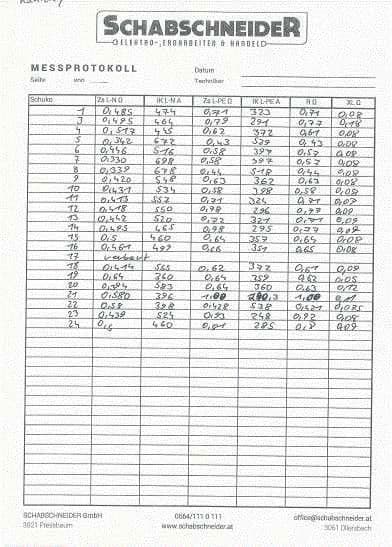 SCHABSCHNEIDER
ELEKTRO-, ERDARBEITEN & HANDEL
MESSPROTOKOLL
Datum
Seite von
Techniker
Schuko Zs L-N Ω IK L-N A Zs L-PE Ω IK L-PE A R Ω XL Ω
1 0,485 474 0,71 323 0,71 0,08
3 0,495 464 0,79 291 0,77 0,18
4 0,517 445 0,62 372 0,61 0,08
5 0,342 672 0,43 0,43 0,08
6 0,446 516 0,58 397 0,57 0,08
7 0,330 698 0,58 397 0,57 0,08
8 0,339 678 0,44 518 0,44 0,08
9 0,420 548 0,63 362 0,63 0,08
10 0,431 534 0,58 398 0,58 0,08
11 0,413 557 0,71 324 0,71 0,08
12 0,418 550 0,78 296 0,77 0,08
13 0,442 520 0,72 321 0,71 0,09
14 0,495 465 0,78 295 0,77 0,08
15 0,5 460 0,64 357 0,64 0,08
16 0,461 499 0,66 351 0,65 0,08
17 verbaut
18 0,414 555 0,62 372 0,61 0,09
19 0,64 360 0,64 359 0,62
20 0,394 583 0,64 360 0,63 0,12
21 0,580 396 1,00 1,00 0,11
22 0,58 398 0,428 538 0,421 0,085
23 0,439 524 0,93 248 0,92 0,08
24 0,5 460 0,81 285 0,8 0,09
SCHABSCHNEIDER GmbH 0664/111 0 111 office@schabschneider.at
3021 Pressbaum www.schabschneider.at 3061 Ollersbach